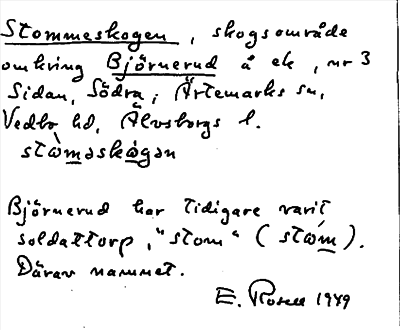 Stommeskogen, skogsområde
omkring Björnerud å ek, nr 3
Sidan, Södra, Ärtemarks sn,
Vedbo hd, Älvsborgs l.
stωməskωgən
Björnerud har tidigare varit
soldattorp, "stom" (stωm).
Därav namnet.
E. Rosell 1949